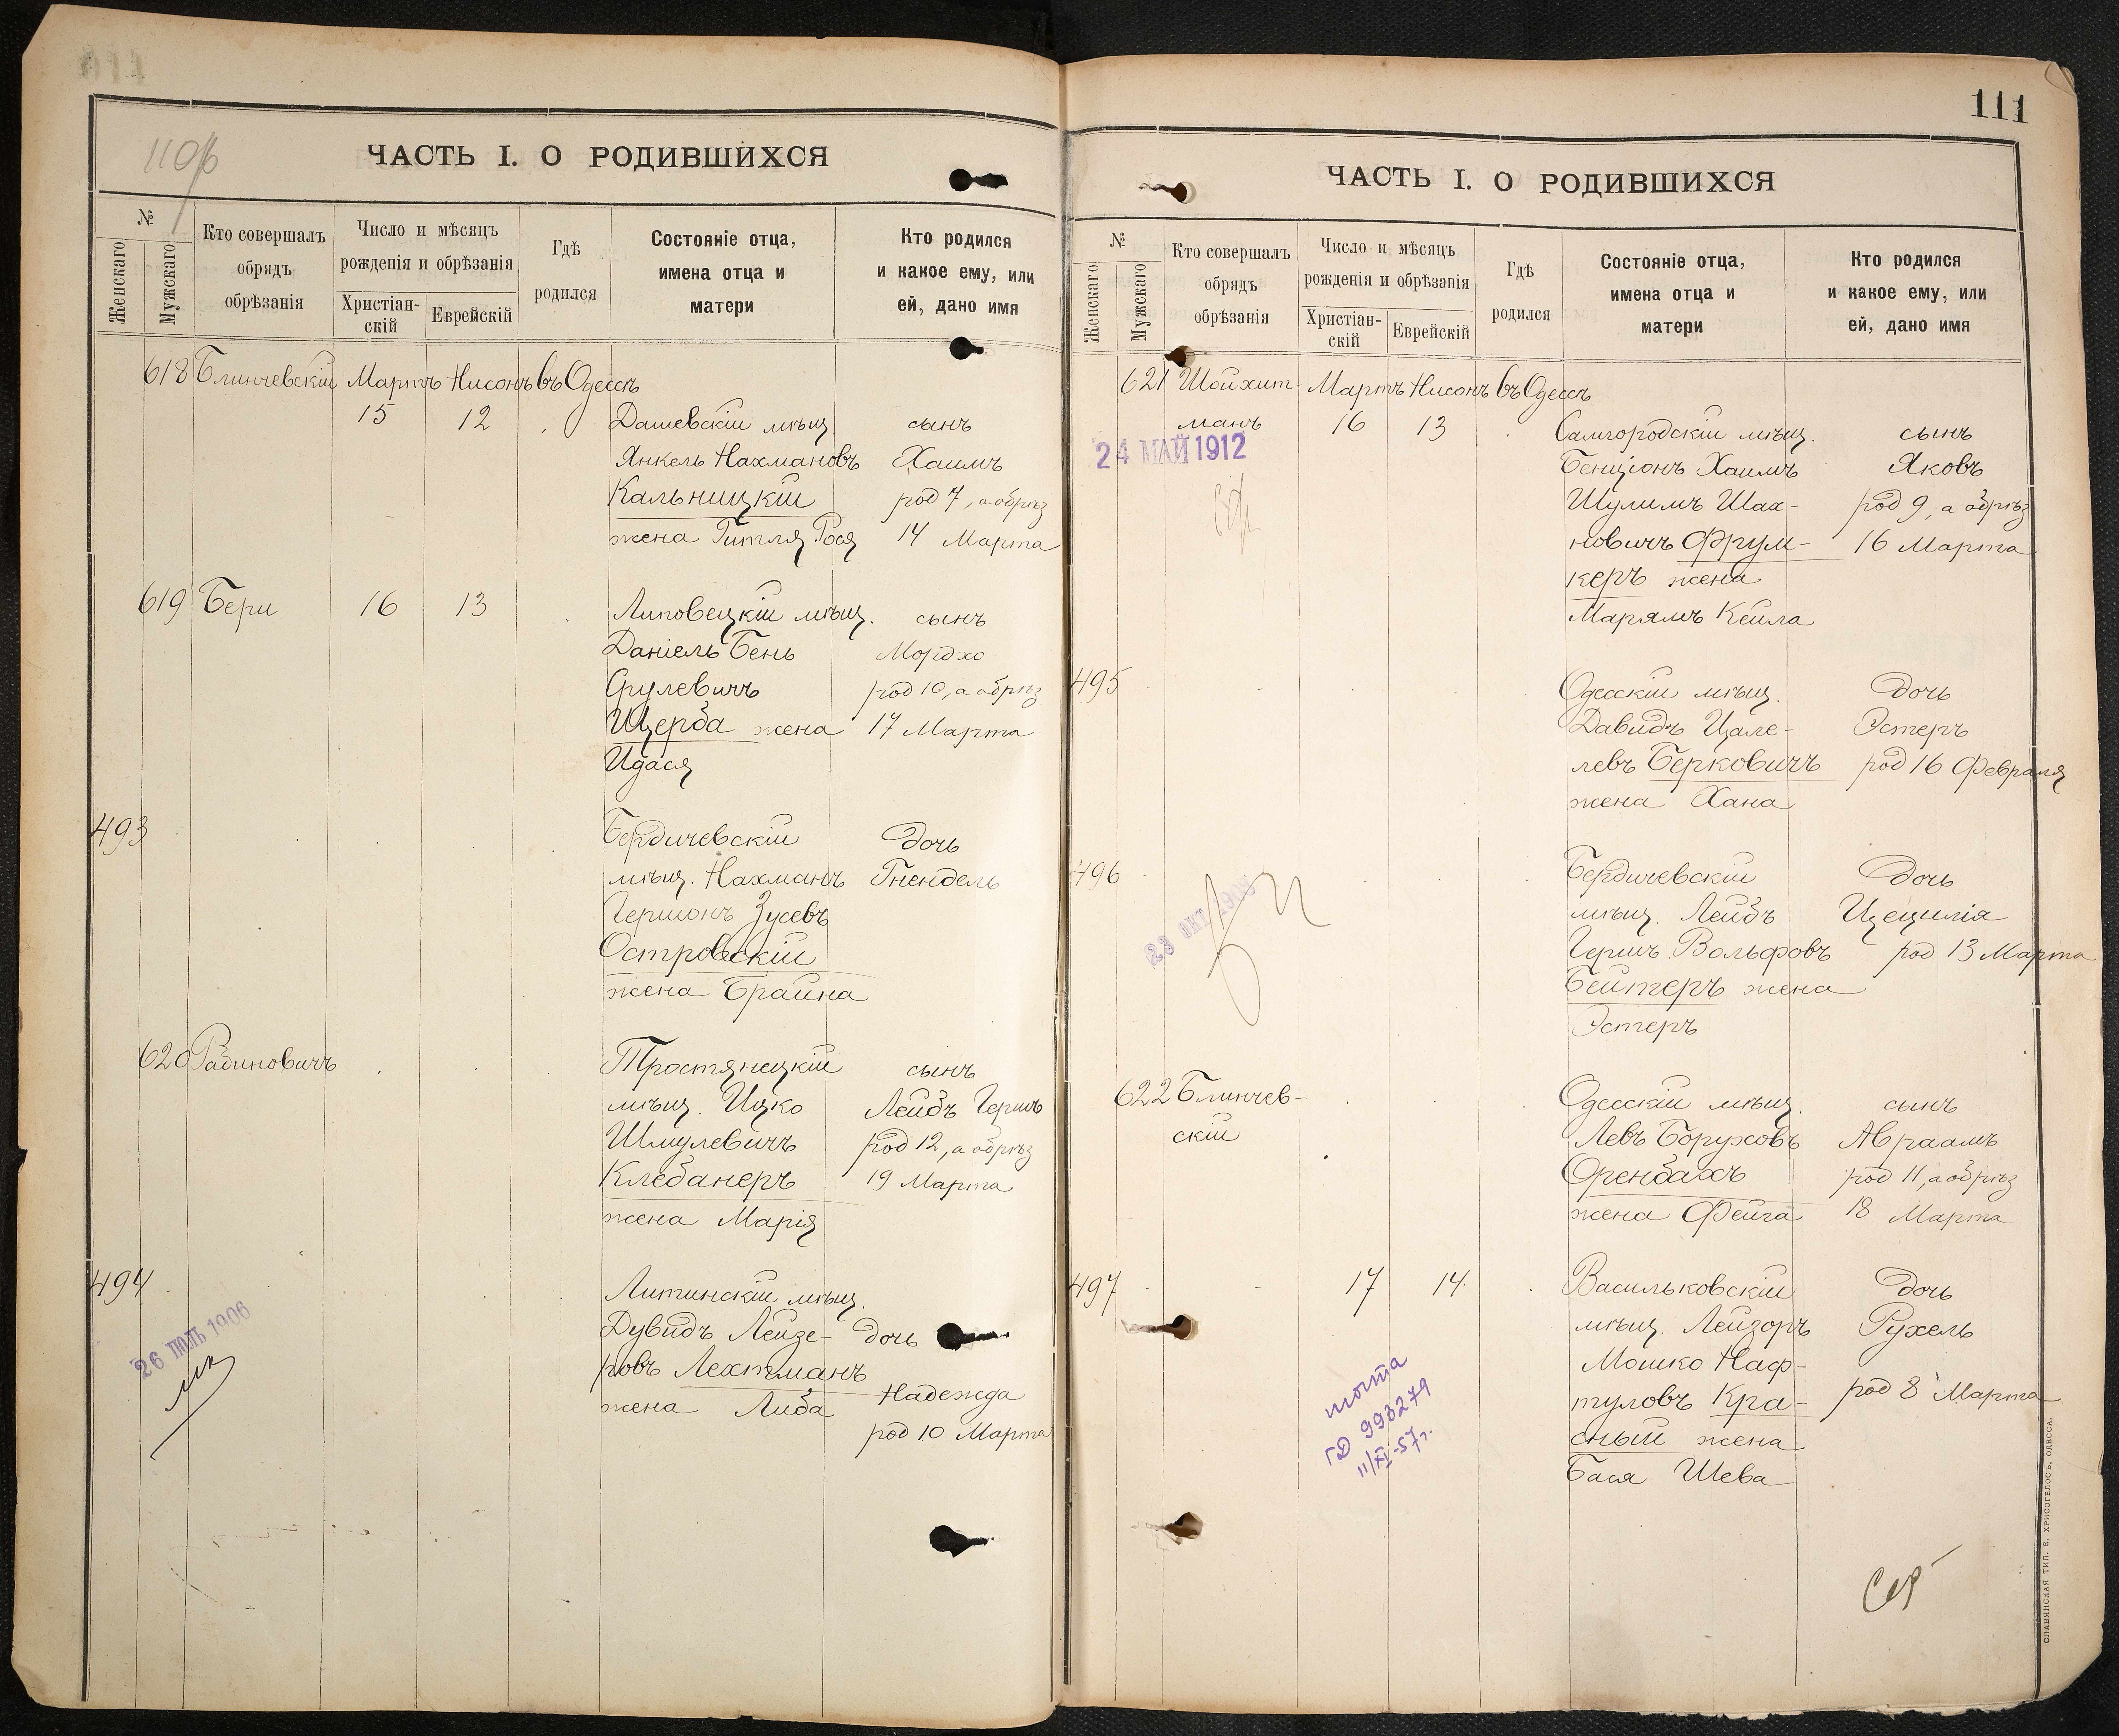 110об
ЧАСТЬ I. О РОДИВШИХСЯ
№
Женскаго
Мужскаго
Кто совершалъ
обрядъ
обрѣзанія
Число и мѣсяцъ
рожденія и обрѣзанія
Христіан-
скій
Еврейскій
Гдѣ
родился
Состояніе отца,
имена отца и
матери
Кто родился
и какое ему, или
ей, дано имя
618 Блинчевскій Мартъ Нисонъ въ Одессѣ
15 12 Дашевскій мѣщ. сынъ
Янкель Нахмановъ Хаимъ
Кальницкій род 7, а обрѣз
жена Гитля Рося 14 Марта
619 Бери 16 13 Липовецкій мѣщ. сынъ
Даніель Бень Мордхо
Срулевичъ род 10, а обрѣз
Щерба жена 17 Марта
Идася
493 Бердичевскій дочь
мѣщ. Нахманъ Гнендель
Гершонъ Зусевъ
Островскій
жена Брайна
620 Рабиновичъ Тростянецкій сынъ
мѣщ. Ицко Лейбъ Гершъ
Шмулевичъ род 12, а обрѣз
Клебанеръ 19 Марта
жена Марія
494 Литинскій мѣщ.
26 ІЮЛЬ 1906
Дувидъ Лейзе- дочь
ровъ Лехтманъ
жена Либа Надежда
род 10 Марта
111
ЧАСТЬ I. О РОДИВШИХСЯ
№
Женскаго
Мужскаго
Кто совершалъ
обрядъ
обрѣзанія
Число и мѣсяцъ
рожденія и обрѣзанія
Христіан-
скій
Еврейскій
Гдѣ
родился
Состояніе отца,
имена отца и
матери
Кто родился
и какое ему, или
ей, дано имя
621 Шойхит- Мартъ Нисонъ въ Одессѣ
манъ 16 13 Самгородскій мѣщ. сынъ
24 МАЙ 1912
Бенціонъ Хаимъ Яковъ
Шулимъ Шах- род 9, а обрѣз
новичъ Фрум- 16 Марта
керъ жена
Марямъ Кейла
495 Одесскій мѣщ. дочь
Давидъ Цале- Эстеръ
левъ Берковичъ род 16 Февраля
жена Хана
496 Бердичевскій Дочь
мѣщ. Лейбъ Цецилія
Гершъ Вольфовъ род 13 Марта
Бейтеръ жена
Эстеръ
622 Блинчев- Одесскій мѣщ. сынъ
скій Левъ Боруховъ Авраамъ
Оренбахъ род 11, а обрѣз
жена Фейга 18 Марта
497 17 14 Васильковскій дочь
мѣщ. Лейзоръ Рухель
Мошко Наф-
туловъ Кра- род 8 Марта
сный жена
Бася Шева
ГД 993279
11/XI-57г.
СЛАВЯНСКАЯ ТИП. Е. ХРИСОГЕЛОСЪ, ОДЕССА.